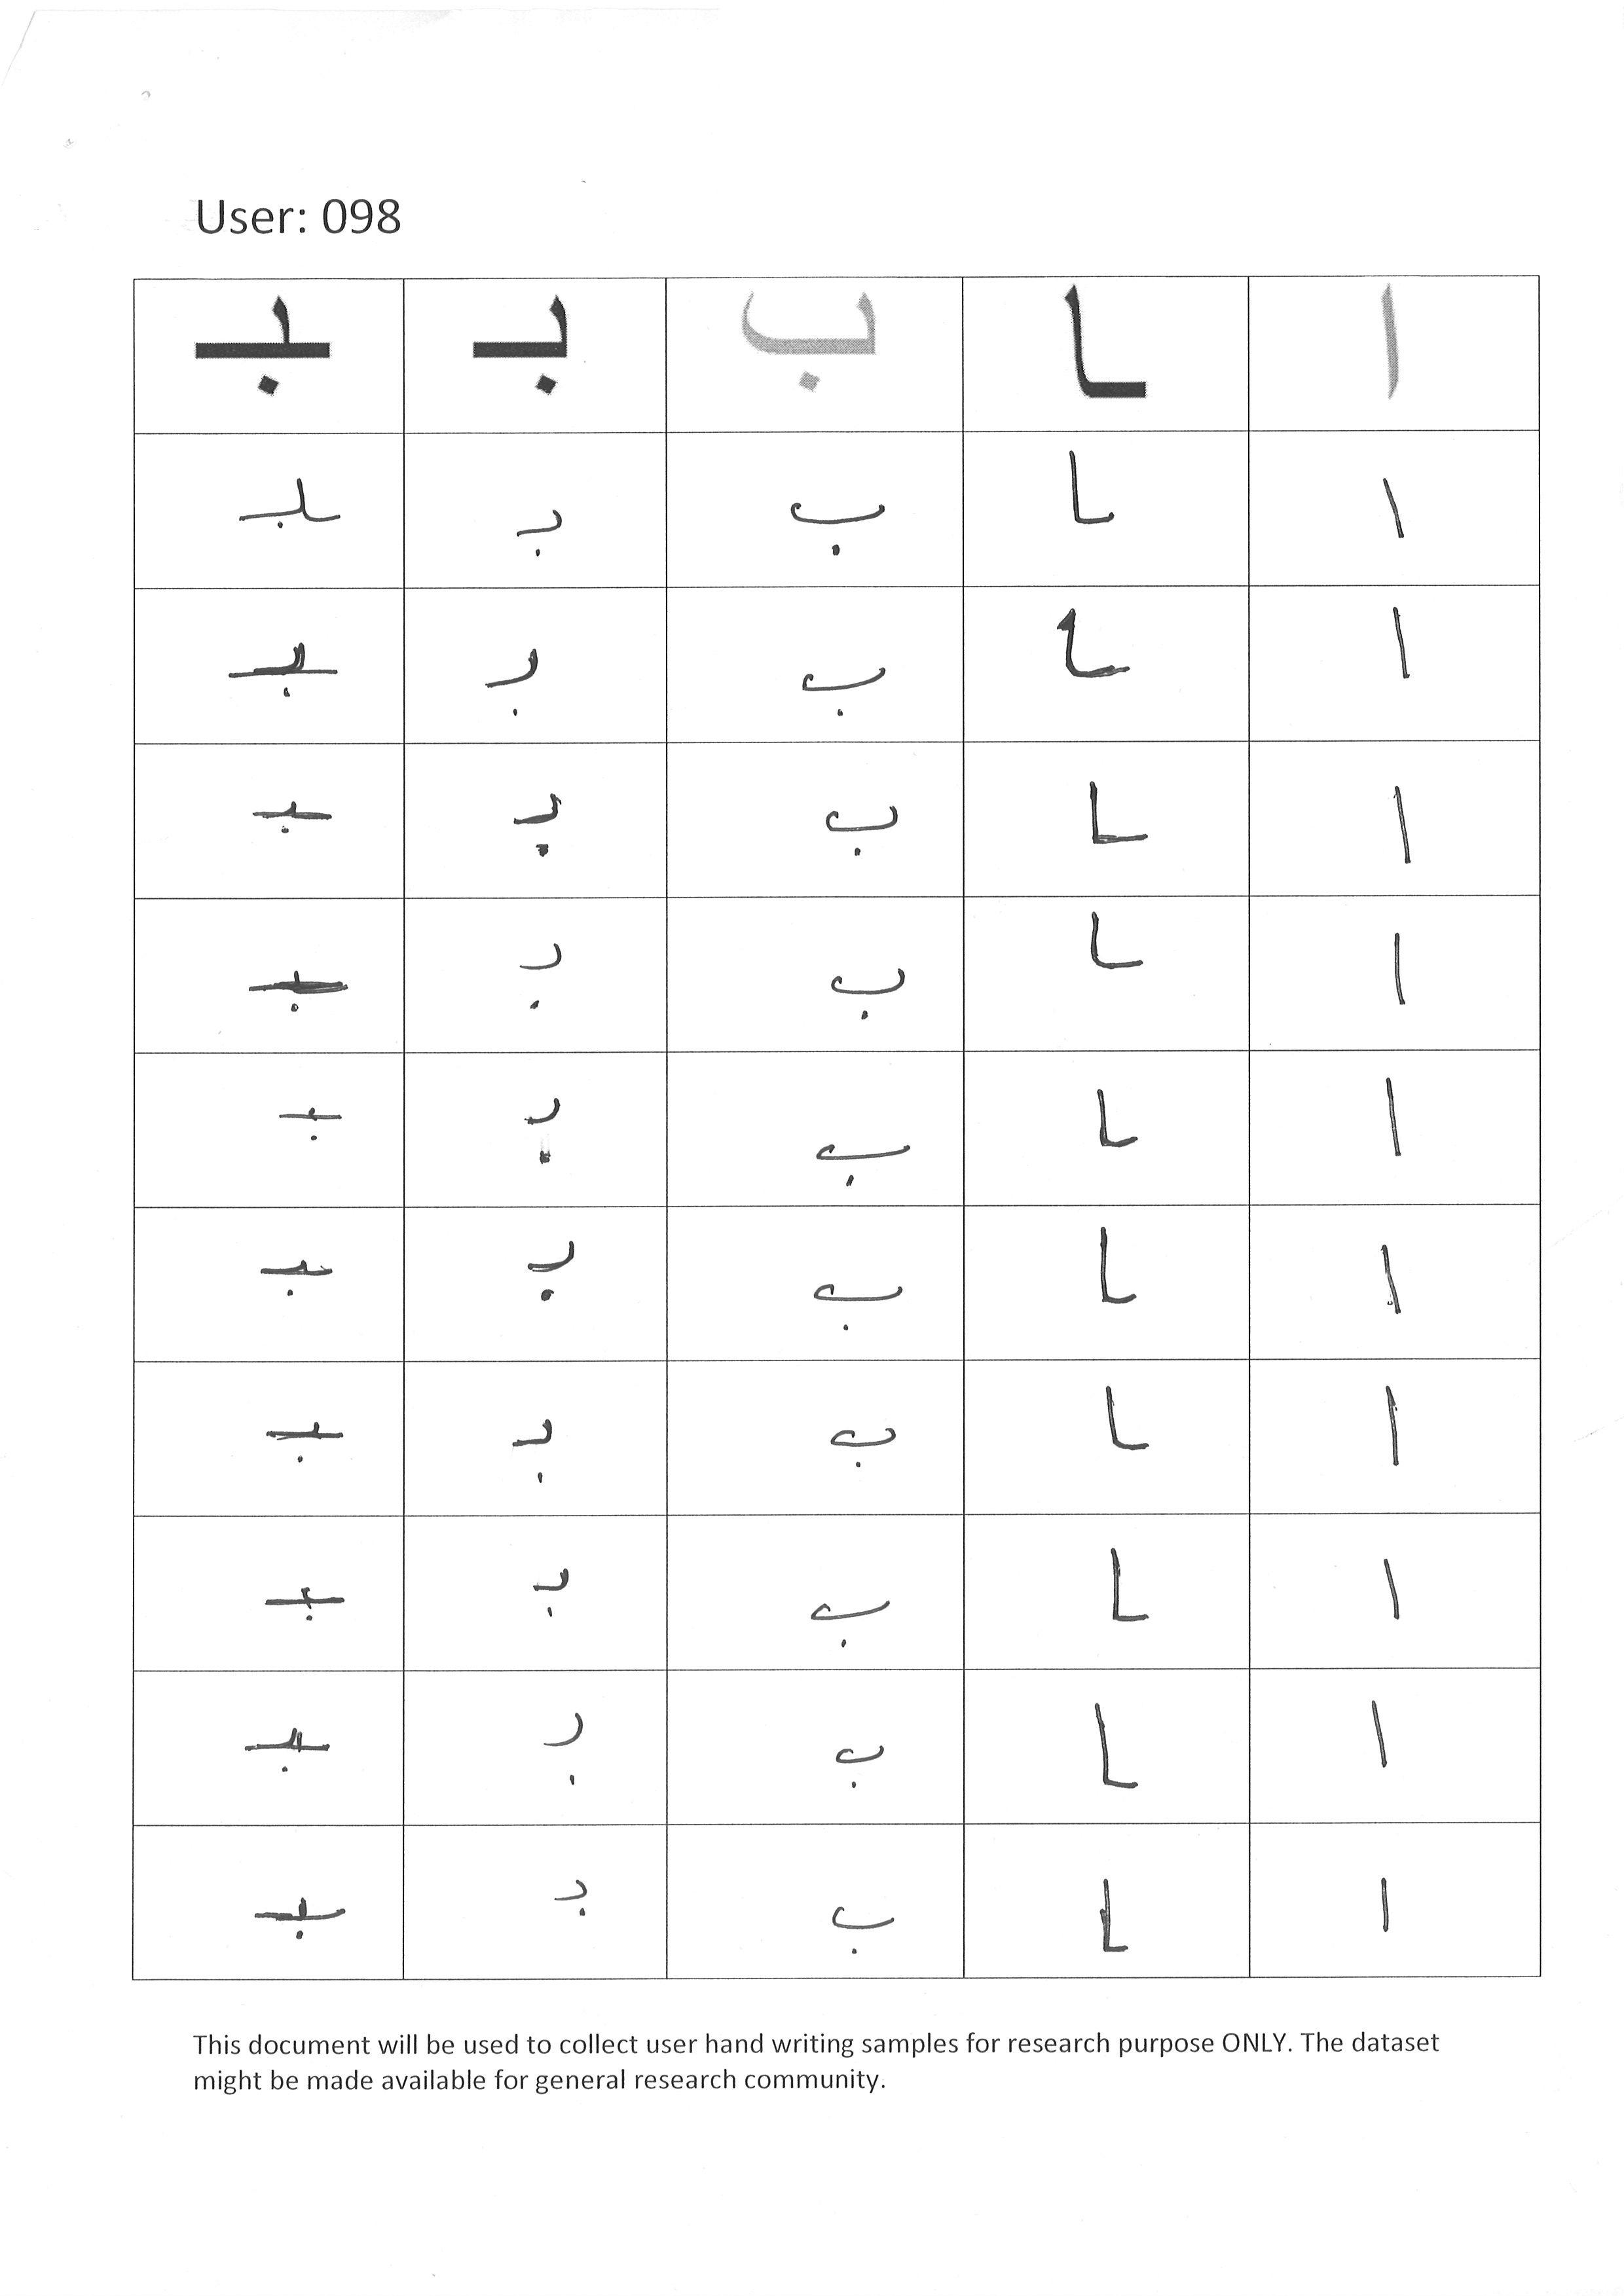 User: 098
ا ـا ب بـ ـبـ
ا ـا ب بـ ـبـ
ا ـا ب بـ ـبـ
ا ـا ب بـ ـبـ
ا ـا ب بـ ـبـ
ا ـا ب بـ ـبـ
ا ـا ب بـ ـبـ
ا ـا ب بـ ـبـ
ا ـا ب بـ ـبـ
ا ـا ب بـ ـبـ
ا ـا ب بـ ـبـ
This document will be used to collect user hand writing samples for research purpose ONLY. The dataset
might be made available for general research community.